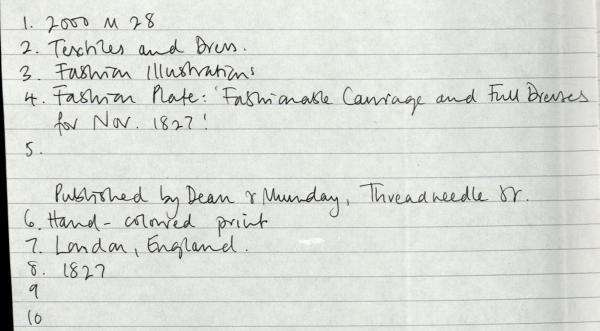 1. 2000 M 28
2. Textiles and Dress.
3. Fashion Illustrations
4. Fashion Plate: 'Fashionable Carriage and Full Dresses
for Nov. 1827'
5.
Published by Dean & Munday, Threadneedle St.
6. Hand-coloured print
7. London, England.
8. 1827
9
10